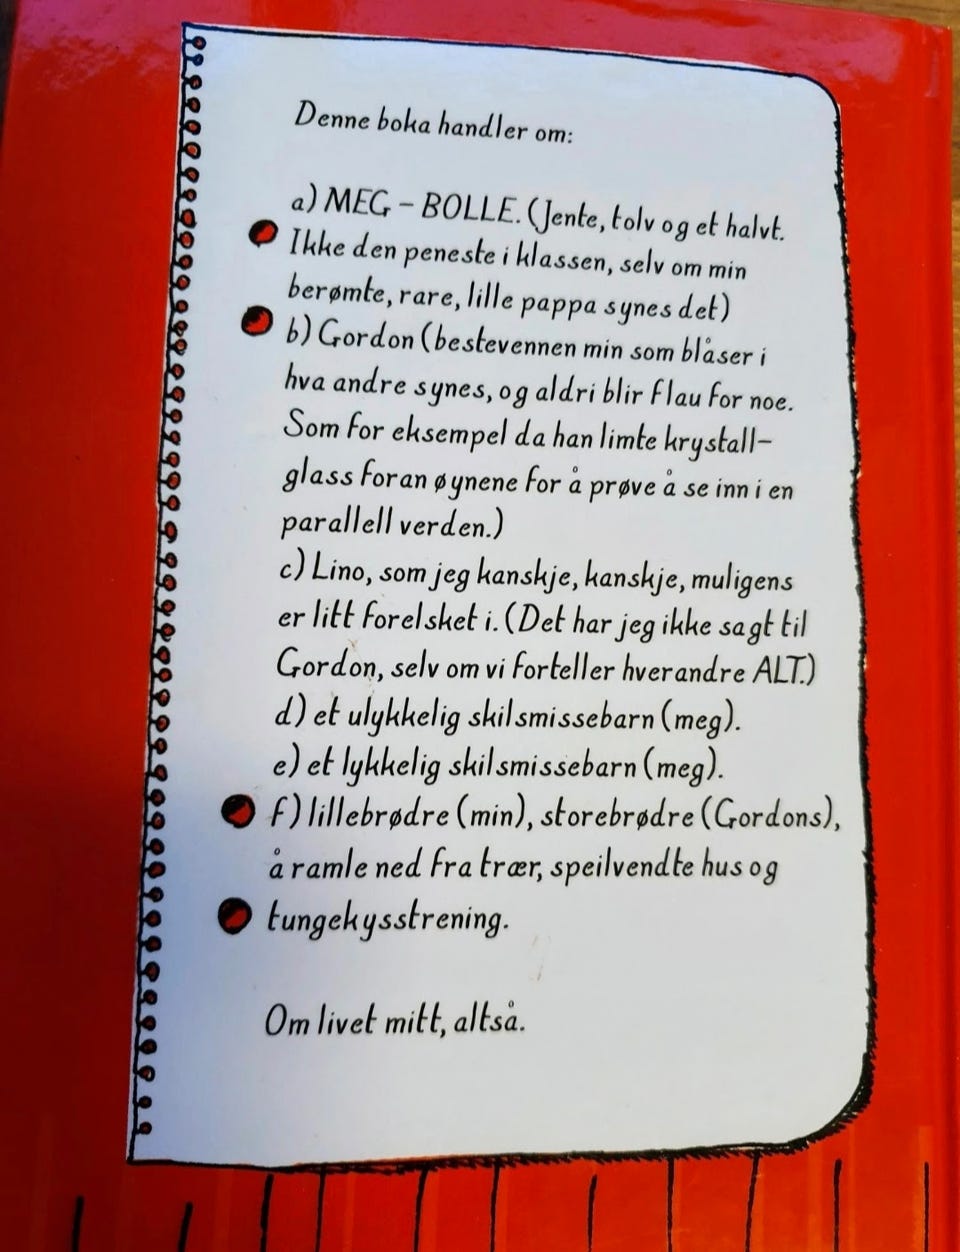 Denne boka handler om:
a) MEG – BOLLE. (Jente, tolv og et halvt.
Ikke den peneste i klassen, selv om min
berømte, rare, lille pappa synes det)
b) Gordon (bestevennen min som blåser i
hva andre synes, og aldri blir flau for noe.
Som for eksempel da han limte krystall-
glass foran øynene for å prøve å se inn i en
parallell verden.)
c) Lino, som jeg kanskje, kanskje, muligens
er litt forelsket i. (Det har jeg ikke sagt til
Gordon, selv om vi forteller hverandre ALT.)
d) et ulykkelig skilsmissebarn (meg).
e) et lykkelig skilsmissebarn (meg).
f) lillebrødre (min), storebrødre (Gordons),
å ramle ned fra trær, speilvendte hus og
tungekysstrening.
Om livet mitt, altså.